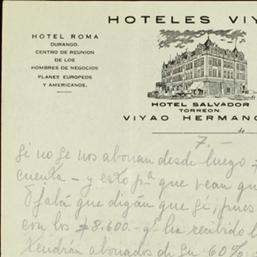 HOTELES VIYA
HOTEL ROMA
DURANGO.
CENTRO DE REUNION
DE LOS
HOMBRES DE NEGOCIOS
PLANES EUROPEOS
Y AMERICANOS.
HOTEL SALVADOR
TORREON
VIYAO HERMANO
de
7.-
Si no se nos abonan desde luego
cuenta - y esto pª que vean qu
Ojalá que digan que sí, pues
con los $8.600.- qº ha recibido l
tendrán abonados de su 60%